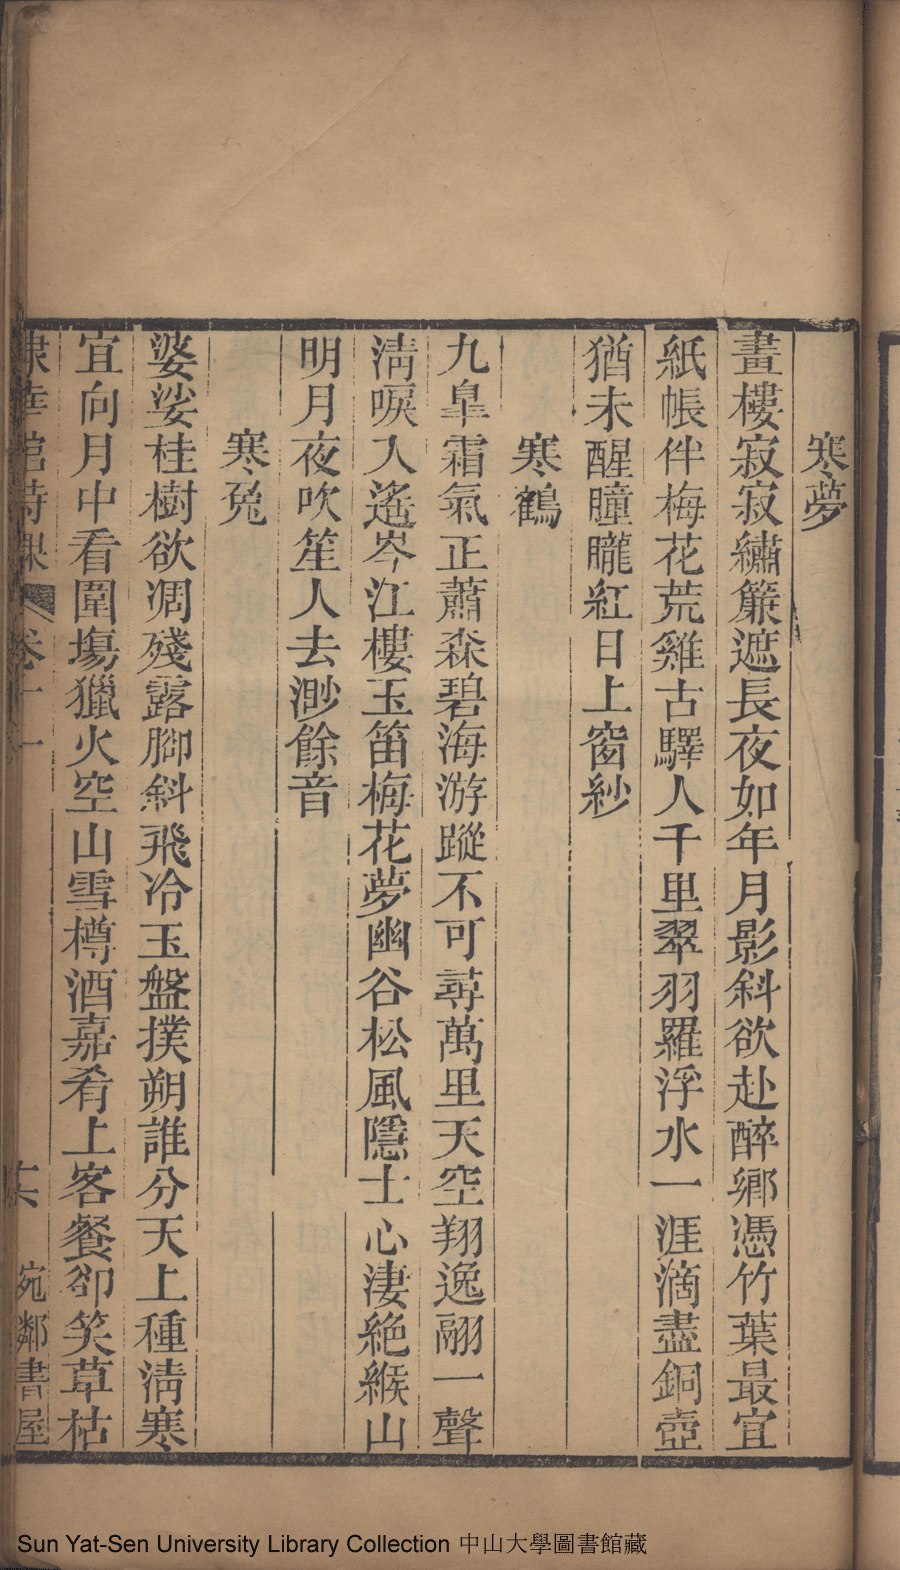 寒夢
畫樓寂寂繡簾遮長夜如年月影斜欲赴醉鄉憑竹葉最宜
紙帳伴梅花荒雞古驛人千里翠羽羅浮水一涯滴盡銅壺
猶未醒曈曨紅日上窗紗
寒鶴
九臯霜氣正蕭森碧海游蹤不可尋萬里天空翔逸翮一聲
淸唳入遙岑江樓玉笛梅花夢幽谷松風隱士心淒絶緱山
明月夜吹笙人去渺餘音
寒兔
婆娑桂樹欲凋殘露脚斜飛冷玉盤撲朔誰分天上種淸寒
宜向月中看圍塲獵火空山雪樽酒嘉肴上客餐卻笑草枯
棣華館詩課 卷十一 十六 宛鄰書屋
Sun Yat-Sen University Library Collection 中山大學圖書館藏